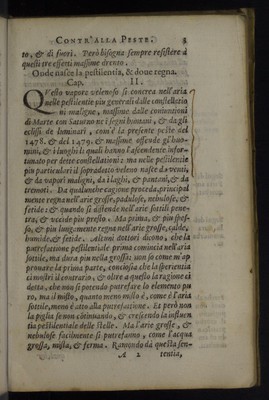 CONTR' ALLA PESTE. 3
to, & di fuori. Però bisogna sempre resistere à
questi tre effetti massime drento.
Onde nasce la pestilentia, & doue regna.
Cap. II.
QVesto vapore velenoso si concrea nell'aria
nelle pestilentie piu generali dalle constellatio
ni maligne, massime dalle coniuntioni
di Marte con Saturno ne i segni humani, & da gli
eclissi de luminari, com'è la presente peste del
1478. & del 1479. & massime offende gl'huo-
mini, & i luoghi li quali hanno l'ascendente infor-
tunato per dette constellationi: ma nelle pestilentie
piu particulari il sopradetto veleno nasce da venti,
& da vapori maligni, da i laghi, & pantani, & da
tremoti. Da qualunche cagione proceda, principal
mente regna nell'arie grosse, padulose, nebulose, &
fetide: & quando si distende nell'arie sottili pene-
tra, & vccide piu presto. Ma prima, & piu spes-
so, & piu lungamente regna nell'arie grosse, calde,
humide, & fetide. alcuni dottori diuono, che la
putrefatione pestilentiale prima comincia nell'aria
sottile, ma dura piu nella grossa; non so come m'ap
prouare la prima parte, conciosia che la sperientia
ci mostri il contrario, & oltre a questo la ragione ci
detta, che non si potendo putrefare lo elemento pu
ro, ma il misto, quanto meno misto è, come è l'aria
sottile, meno è atto alla putrefatione. Et però non
la piglia se non côtinuando, & crescendo la influen
tia pestilentiale delle stelle. Ma l'arie grosse, &
nebulose facilmente si putrefanno, come l'acqua
grossa, mista, & ferma. Raimondo dà questa sen-
A 2 tentia,